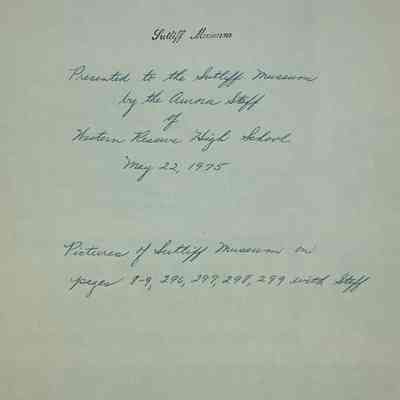 Sutliff Museum
Presented to the Sutliff Museum
by the Aurora Staff
of
Western Reserve High School
May 22, 1975
Pictures of Sutliff Museum on
pages 8-9, 296, 297, 298, 299 with Staff